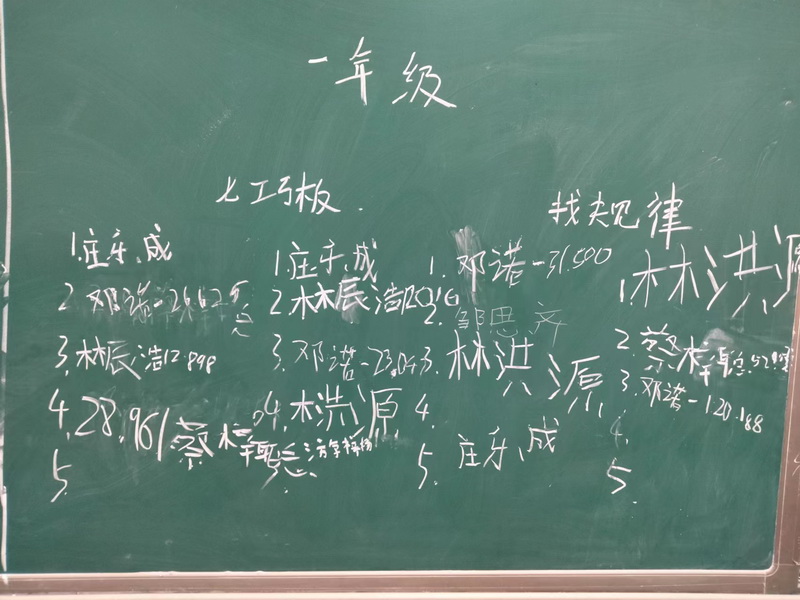 一年级
七工巧板.
找规律
1.庄乐成
2 邓诺一26.62
3.林辰浩12.898
4.28.961 蔡
5.
1.庄乐成
2.林辰浩
3.邓诺一23.04
4.林洪源
5.
1.邓诺一31.500
2.邹思齐
3.林洪源
4.
5.庄乐成
1.林洪源
2.蔡
3.邓诺一120.188
4.
5